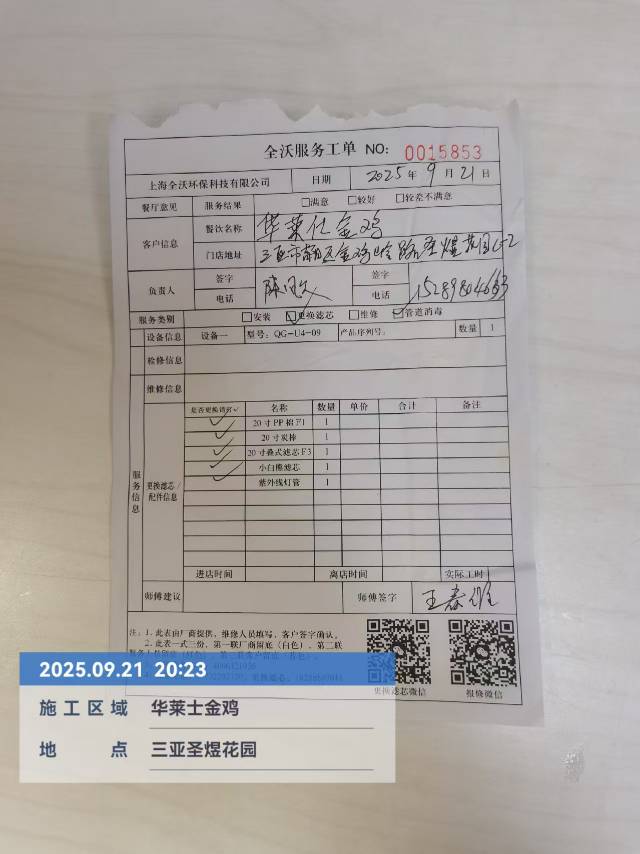 全沃服务工单 NO: 0015853
上海全沃环保科技有限公司 日期 2025年9月21日
餐厅意见 服务结果 □满意 □较好 □较差不满意
客户信息 餐饮名称 华莱仕金鸡
门店地址 三亚市 区金鸡岭路圣煌花园
负责人 签字 签字
电话 电话
服务类别 □安装 ☑更换滤芯 □维修 ☑管道消毒
设备信息 设备一 型号: QG-U4-09 产品序列号: 数量 1
检修信息
维修信息
服务信息
更换滤芯/配件信息
是否更换请打✓ 名称 数量 单价 合计 备注
✓ 20寸PP棉F1 1
✓ 20寸炭棒 1
✓ 20寸叠式滤芯F3 1
✓ 小白椎滤芯 1
✓ 紫外线灯管 1
进店时间 离店时间 实际工时
师傅建议 师傅签字 王春雄
注: 1. 此表由厂商提供、维修人员填写、客户签字确认。
2. 此表一式三份、第一联厂商留底(白色)、第二联
更换滤芯微信 报修微信
2025.09.21 20:23
施工区域 华莱士金鸡
地点 三亚圣煜花园